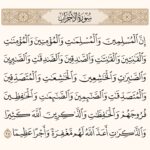 سُورَةُ الأَحْزَاب
إِنَّ ٱلْمُسْلِمِينَ وَٱلْمُسْلِمَٰتِ وَٱلْمُؤْمِنِينَ وَٱلْمُؤْمِنَٰتِ
وَٱلْقَٰنِتِينَ وَٱلْقَٰنِتَٰتِ وَٱلصَّٰدِقِينَ وَٱلصَّٰدِقَٰتِ وَٱلصَّٰبِرِينَ
وَٱلصَّٰبِرَٰتِ وَٱلْخَٰشِعِينَ وَٱلْخَٰشِعَٰتِ وَٱلْمُتَصَدِّقِينَ
وَٱلْمُتَصَدِّقَٰتِ وَٱلصَّٰٓئِمِينَ وَٱلصَّٰٓئِمَٰتِ وَٱلْحَٰفِظِينَ
فُرُوجَهُمْ وَٱلْحَٰفِظَٰتِ وَٱلذَّٰكِرِينَ ٱللَّهَ كَثِيرًا
وَٱلذَّٰكِرَٰتِ أَعَدَّ ٱللَّهُ لَهُم مَّغْفِرَةً وَأَجْرًا عَظِيمًا